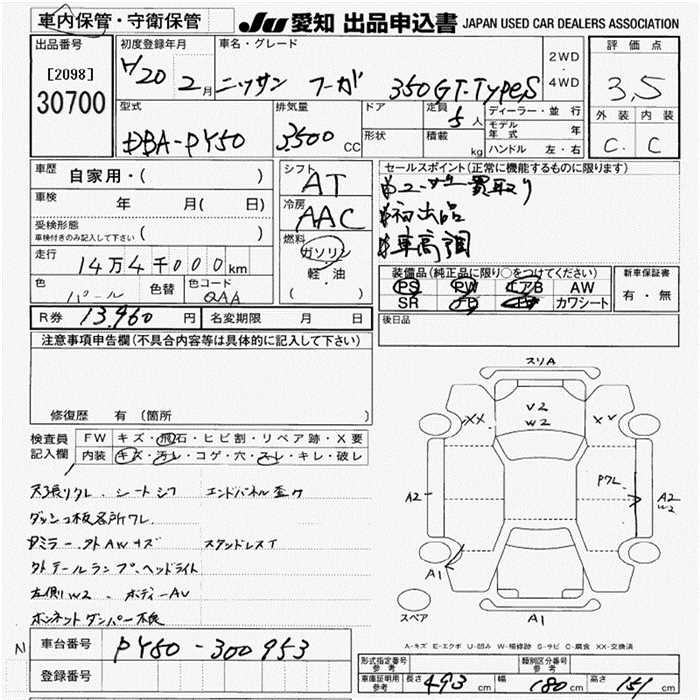 車内保管・守衛保管
JU 愛知 出品申込書 JAPAN USED CAR DEALERS ASSOCIATION
出品番号
[2098]
30700
初度登録年月
H20 2月
車名・グレード
ニッサン フーガ 350GT-TypeS
2WD
・
4WD
評価点
3.5
外装 内装
C. C
型式
DBA-PY50
排気量
3500 CC
ドア
形状
定員 5人
積載 kg
ディーラー・並行
モデル年式 年
ハンドル 左・右
車歴 自家用・( )
車検 年 月( 日)
受検形態
車検付きのみ記入して下さい ( )
走行 14万4千000km
色 パール 色替 色コード QAA
シフト AT
冷房 AAC
燃料
ガソリン
軽・油
( )
セールスポイント(正常に機能するものに限ります)
ユーザー買取り
初出品
車高調
装備品(純正品に限り○をつけてください)
PS PW エアB AW
SR カワシート
新車保証書
有・無
R券 13,960円 名変期限 月 日
後日品
注意事項申告欄(不具合内容等は具体的に記入して下さい)
修復歴 有(箇所 )
検査員記入欄
FW キズ・飛石・ヒビ割・リペア跡・X要
内装 キズ・汚レ・コゲ・穴・スレ・キレ・破レ
天張りクレ シートシワ エンドパネル歪ケ
ダッシュ板各所ワレ
Pミラー カトAWキズ スタンドレスT
カトテールランプ、ヘッドライト
左側W2 ボディーAU
ボンネットダンパー
スリA
XX
V2
W2
XV
A2
Pワレ
A2
W2
A1
スペア
A1
A-キズ E-エクボ U-凹み W-補修跡 S-サビ C-腐食 XX-交換済
N
車台番号 PY50-300953
登録番号
形式指定番号 参考
類別区分番号 参考
車庫証明用 参考 長さ 493cm 幅 180cm 高さ 151cm